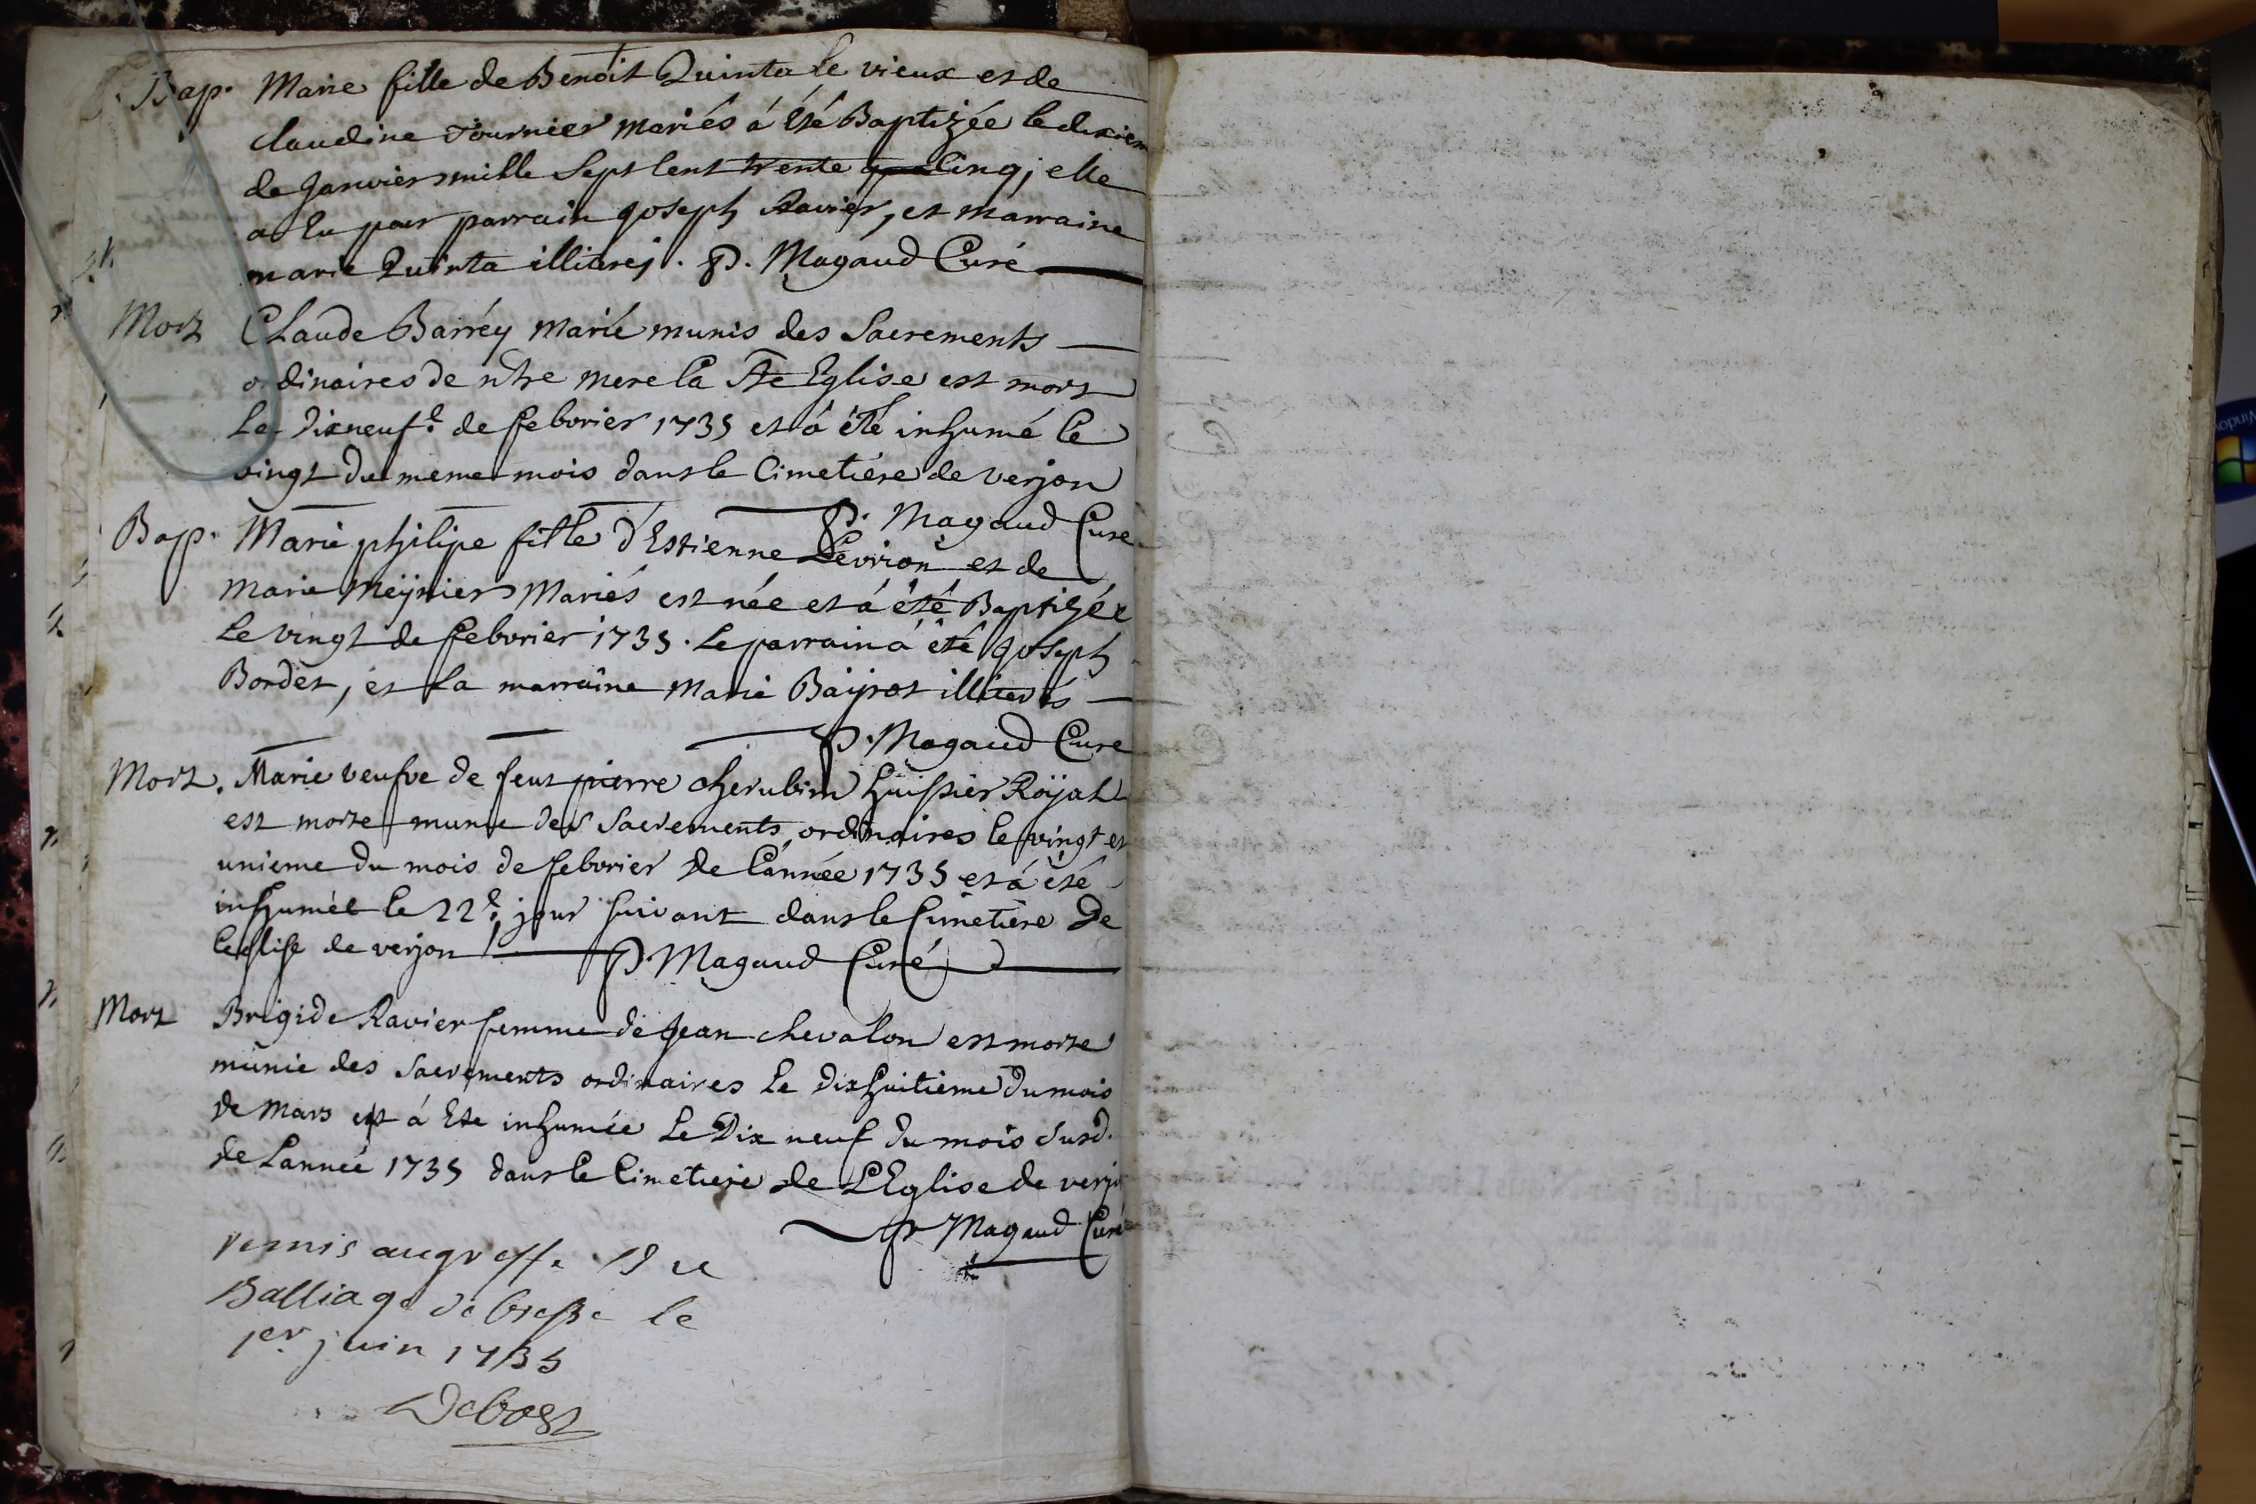 Bap. Marie fille de Benoit Quinta le vieux et de
claudine Tournier mariés á été Baptizée le dixiem
de Janvier mille Sept Cent trente Cinq; elle
a Eu pour parrain Joseph Ravier, et marraine
marie Quinta illiterés. P. Magaud Curé
Mort Claude Barréy marié munis des Sacrements
ordinaires de ntre mere la Ste Eglise est mort
Le dixneufe de feborier 1735 et á été inhumé le
vingt du meme mois dans le Cimetiére de verjon
P. Magaud Curé
Bap. Marie philipe fille d'Estienne Levrion et de
Marie Meÿnier Mariés est née et á été Baptizée
Le vingt de feborier 1735. Le parrain á été Joseph
Bordet, et La marraine Marie Baijrot illiterés
P. Magaud Cure
Mort. Marie veufve de feut pierre cherubim huissier Roÿal
est morte munie des Sacrements ordinaires le vingt et
unieme du mois de feborier de L'année 1735 et á été
inhumée le 22e jour suivant dans le Cimetiere de
Leglise de verjon P. Magaud Curé
Mort Brigide Ravier femme de Jean chevalon est morte
munie des Sacrements ordinaires Le dixhuitieme du mois
de Mars et á Ete inhumée Le Dix neuf du mois Susd.
de L'année 1735 dans le Cimetiere de L'Eglise de verjo
P Magaud Curé
remis au greffe Du
Balliage de bresse le
1er juin 1735
Debost
Windo